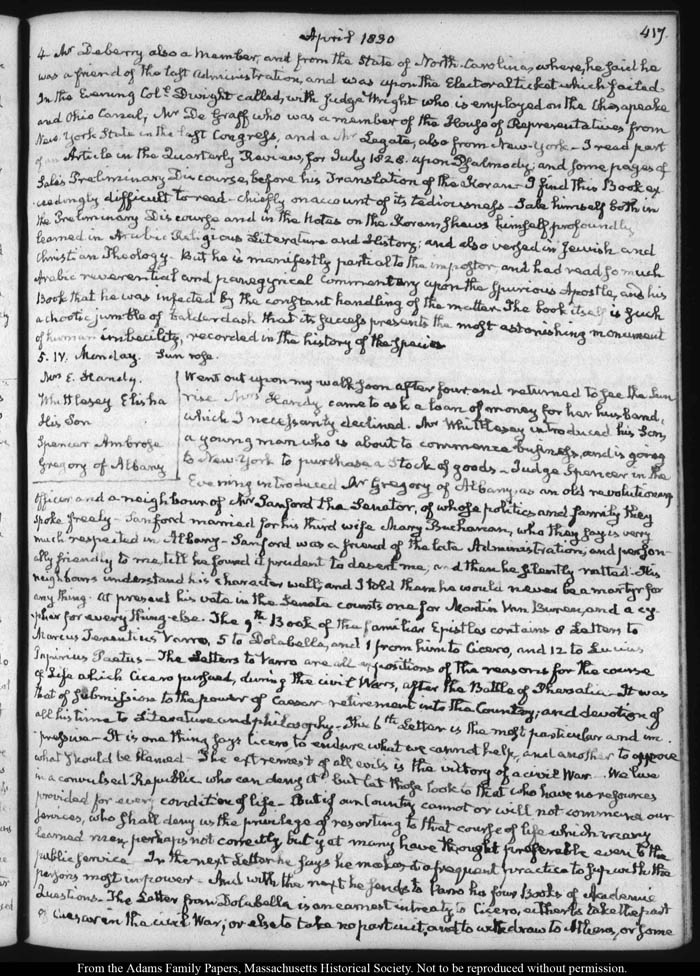 April 1830
417.
4 Mr Deberry also a Member, and from the State of North-Carolina, where, he said he
was a friend of the last Administration, and was upon the Electoral ticket which failed
In the Evening Coll. Dwight called, with Judge Wright who is employed on the Chesapeake
and Ohio Canal, Mr De Graff who was a member of the House of Representatives from
New-York State in the last Congress, and a Mr Legate, also from New-York - I read part
of an Article in the Quarterly Review, for July 1828. upon Psalmody; and some pages of
Sale's Preliminary Discourse, before his Translation of the Koran - I find this Book ex
ceedingly difficult to read - chiefly on account of its tediousness - Sale himself both in
the Preliminary Discourse and in the Notes on the Koran shews himself profoundly
learned in Arabic Religious Literature and History; and also versed in Jewish and
Christian Theology - But he is manifestly partial to the impostor, and had read so much
Arabic reverential and panegyrical commentary upon the spurious Apostle, and his
Book that he was infected by the constant handling of the matter. The book itself is such
a chaotic jumble of balderdash that its success presents the most astonishing monument
of human imbecility, recorded in the history of the species
5. IV. Monday. Sun rose.
Mrs E. Handy.
Whittlesey Elisha
His Son
Spencer Ambrose
Gregory of Albany
Went out upon my walk soon after four and returned to see the Sun
rise Mrs Handy came to ask a loan of money for her husband,
which I necessarily declined. Mr Whittlesey introduced his Son,
a young man who is about to commence business, and is going
to New-York to purchase a stock of goods - Judge Spencer in the
Evening introduced Mr Gregory of Albany, as an old revolutionary
Officer and a neighbour of Mr Sanford the Senator, of whose politics and family they
spoke freely - Sanford married for his third wife Mary Buchanan, who they say is very
much respected in Albany - Sanford was a friend of the late Administration, and person-
ally friendly to me, till he found it prudent to desert me; and then he silently ratted. His
neighbours understand his character well; and I told them he would never be a martyr for
any thing. At present his vote in the Senate counts one for Martin Van Buren, and a cy-
pher for every thing else. The 9th Book of the familiar Epistles contains 8 Letters to
Marcus Terentius Varro, 5 to Dolabella, and 1 from him to Cicero, and 12 to Lucius
Papirius Paetus - The Letters to Varro are all expositions of the reasons for the course
of Life which Cicero pursued, during the civil Wars, after the Battle of Pharsalia - It was
that of submission to the power of Caesar retirement into the Country; and devotion of
all his time to Literature and philosophy - The 6th Letter is the most particular and im-
pressive - It is one thing says Cicero, to endure what we cannot help, and another to approve
what should be blamed - The extremest of all evils is the victory of a civil War - We live
in a convulsed Republic who can deny it? but let those look to that who have no resources
provided for every condition of life - But if our Country cannot or will not command our
services, who shall deny us the privilege of resorting to that course of life which many
learned men, perhaps not correctly, but yet many have thought preferable even to the
public service - In the next Letter he says he makes it a frequent practice to sup with the
persons most in power - And with the next he sends to Varro his four Books of Academic
Questions - The Letter from Dolabella is an earnest intreaty to Cicero, either to take the part
of Caesar in the civil War; or else to take no part in it, and to withdraw to Athens, or some
From the Adams Family Papers, Massachusetts Historical Society. Not to be reproduced without permission.